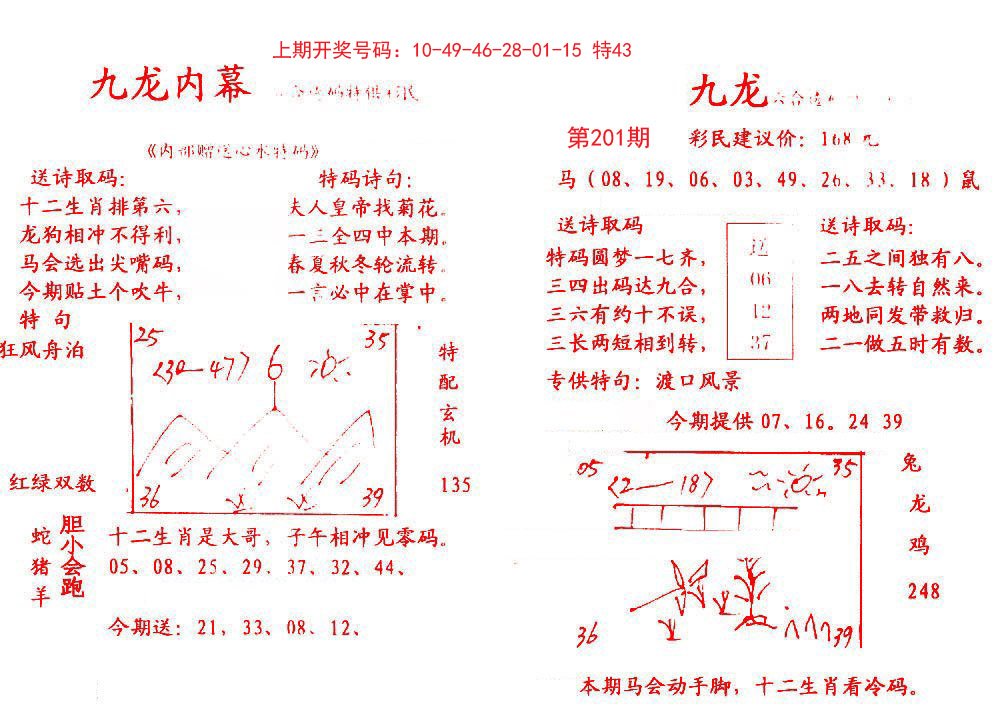 上期开奖号码：10-49-46-28-01-15 特43
九龙内幕
码特供
《内部赠送心水特码》
送诗取码：
十二生肖排第六，
龙狗相冲不得利，
马会选出尖嘴码，
今期贴土个吹牛，
特码诗句：
夫人皇帝找菊花。
一三全四中本期。
春夏秋冬轮流转。
一言必中在掌中。
特 句
狂风舟泊
红绿双数
25
35
<30—47> 6
36
39
特配玄机
135
蛇猪羊
胆小会跑
十二生肖是大哥，子午相冲见零码。
05、08、25、29、37、32、44、
今期送：21，33、08、12、
九龙六合
第201期 彩民建议价：168元
马（08、19、06、03、49、26、33、18）鼠
送诗取码
特码圆梦一七齐，
三四出码达九合，
三六有约十不误，
三长两短相到转，
送
06
12
37
送诗取码：
二五之间独有八。
一八去转自然来。
两地同发带救归。
二一做五时有数。
专供特句：渡口风景
今期提供07、16。24 39
05
35
<2—18>
36
39
兔
龙
鸡
248
本期马会动手脚，十二生肖看冷码。